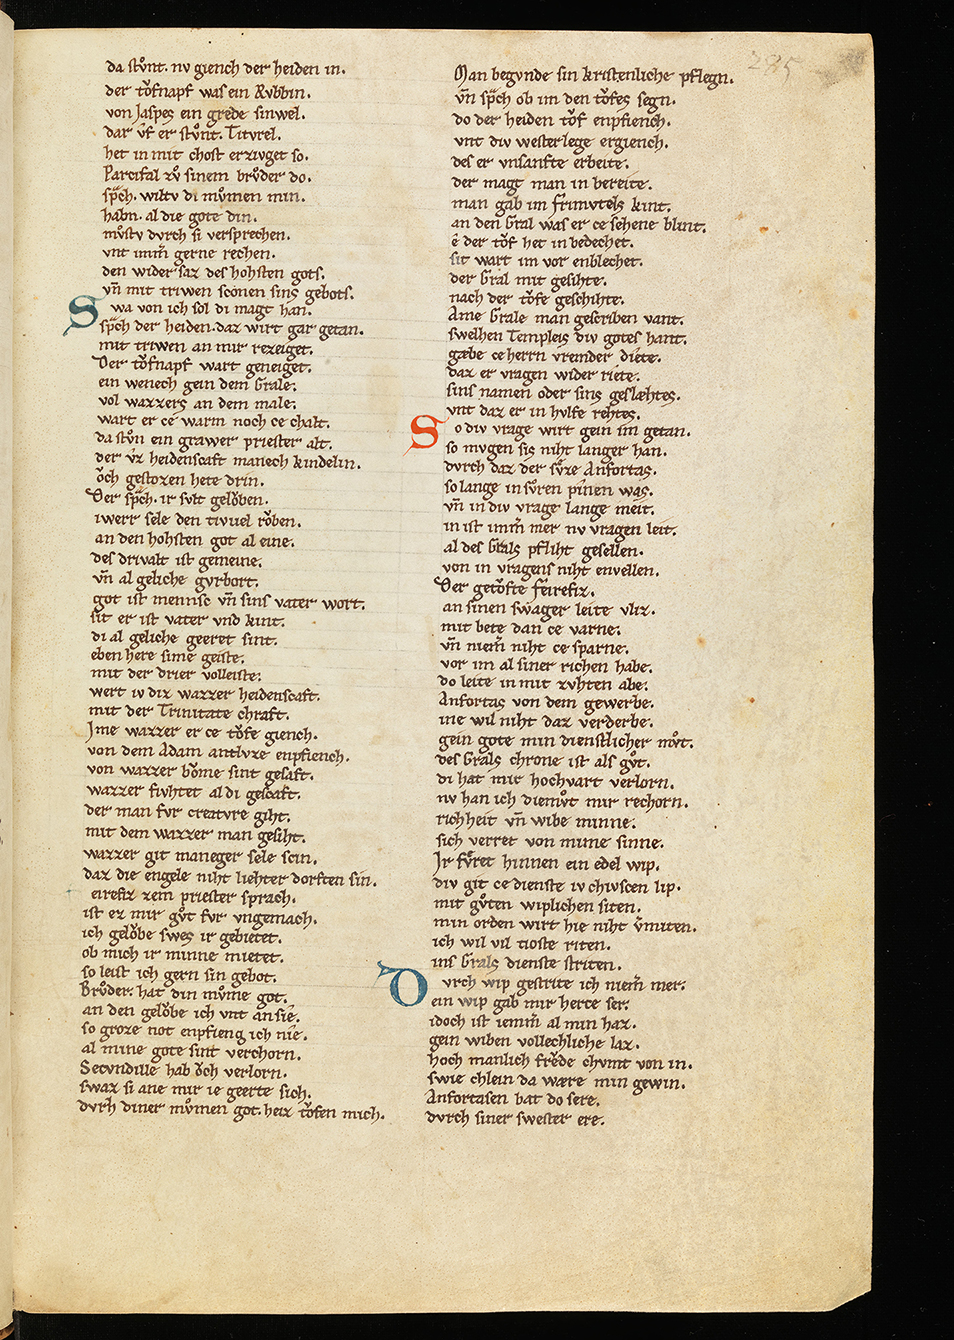 da stůnt. nv giench der heiden in.
der tǒfnapf was ein Rvbbin.
von Jaspes ein grede sinwel.
dar v̂f er stůnt. Titvrel.
het in mit chost erzivget so.
Parcifal zv̊ sinem brv̊der do.
sp̄ch. wiltv di mv̊men min.
habn. al die gote din.
mv̊stv dvrch si versprechen.
vnt imm̄ gerne rechen.
den widersaz des hohsten gots.
vn̄ mit triwen sconen sins gebots.
Swa von ich sol di magt han.
sp̄ch der heiden. daz wirt gar getan.
mit triwen an mir rezeiget.
Der tǒfnapf wart geneiget.
ein wenech gein dem Grale.
vol wazzers an dem male.
wart er ce warm noch ce chalt.
da stv̊n ein grawer priester alt.
der v̂z heidenscaft manech kindelin.
ǒch gestozen hete drin.
Der sp̄ch. ir svlt gelǒben.
iwerr sele den tivuel rǒben.
an den hohsten got al eine.
des drivalt ist gemeine.
vn̄ al geliche gvrbort.
got ist mennisc vn̄ sins vater wort.
sit er ist vater vnd kint.
di al geliche geeret sint.
eben here sime geiste.
mit der drier volleiste.
wert iv diz wazzer heidenscaft.
mit der Trinitate chraft.
Jme wazzer er ce tǒfe giench.
von dem Adam antlvze enpfiench.
von wazzer bǒme sint gesaft.
wazzer fivhtet al di gescaft.
der man fvr creatvre giht.
mit dem wazzer man gesiht.
wazzer git maneger sele scin.
daz die engele niht liehter dorften sin.
eirefiz zem priester sprach.
ist ez mir gůt fvr vngemach.
ich gelǒbe swes ir gebietet.
ob mich ir minne mietet.
so leist ich gern sin gebot.
Brv̊der. hat din mv̊me got.
an den gelǒbe ich vnt an sie.
so groze not enpfieng ich nie.
al mine gote sint verchorn.
Secvndille hab ǒch verlorn.
swaz si ane mir ie geerte sich.
dvrh diner mv̊men got. heiz tǒfen mich.
Man begvnde sin kristenliche pflegn.
vn̄ sp̄ch ob im den tǒfes segn.
do der heiden tǒf enpfiench.
vnt div westerlege ergiench.
des er vnsanfte erbeite.
der magt man in bereite.
man gab im frimvtels kint.
an den Gral was er ce sehene blint.
ê der tǒf het in bedechet.
sit wart im vor enblechet.
der Gral mit gesihte.
nach der tǒfe geschihte.
Ame Grale man gescriben vant.
swelhen Templeis div gotes hant.
gæbe ce herrn vremder diete.
daz er vragen wider riete.
sins namen oder sins geslæhtes.
vnt daz er in hvlfe rehtes.
So div vrage wirt gein im getan.
so mvgen sis niht langer han.
dvrch daz der sv̊ze Anfortas.
so lange in sv̊ren pinen was.
vn̄ in div vrage lange meit.
in ist imm̄ mer nv vragen leit.
al des Grals pfliht gesellen.
von in vragens niht enwellen.
Der getǒfte feirefiz.
an sinen swager leite vliz.
mit bete dan ce varne.
vn̄ niem̄ niht ce sparne.
vor im al siner richen habe.
do leite in mit zvhten abe.
Anfortas von dem gewerbe.
ine wil niht daz verderbe.
gein gote min dienstlicher mv̊t.
des Grals chrone ist als gůt.
di hat mir hochvart verlorn.
nv han ich diemv̊t mir rechorn.
richheit vn̄ wibe minne.
sich verret von mime sinne.
Jr fv̊ret hinnen ein edel wip.
div git ce dienste iv chivscen lip.
mit gůten wiplichen siten.
min orden wirt hie niht v̄miten.
ich wil vil tioste riten.
ins Grals dienste striten.
Dvrch wip gestrite ich niem̄ mer.
ein wip gab mir herce ser.
idoch ist iemm̄ al min haz.
gein wiben vollechliche laz.
hoch manlich frǒde chvmt von in.
swie chlein da wære min gewin.
Anfortasen bat do sere.
dvrch siner swester ere.
285